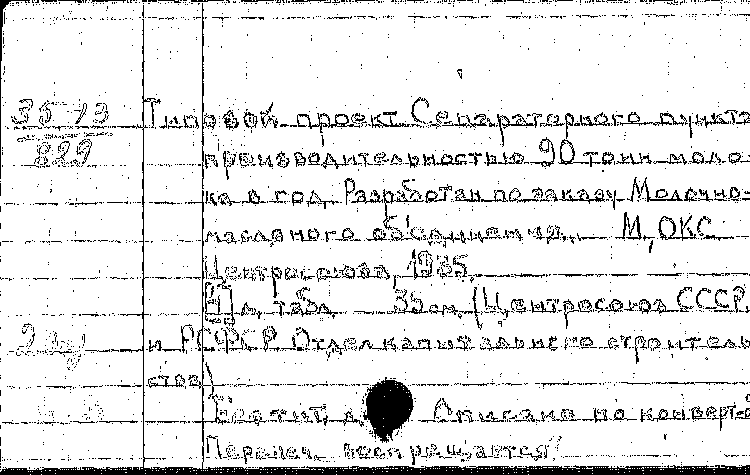 35-13
829
Типовой проект Сепараторного пункта
производительностью 90 тонн моло-
ка в год. Разработан по заказу Молочно-
масляного объединения. М., ОКС
Центросоюза, 1935.
л., табл. 35 см. (Центросоюз СССР.
2 экз
и РСФСР. Отдел капитального строитель-
ства)
Описано по конверту
Перепеч. воспрещается